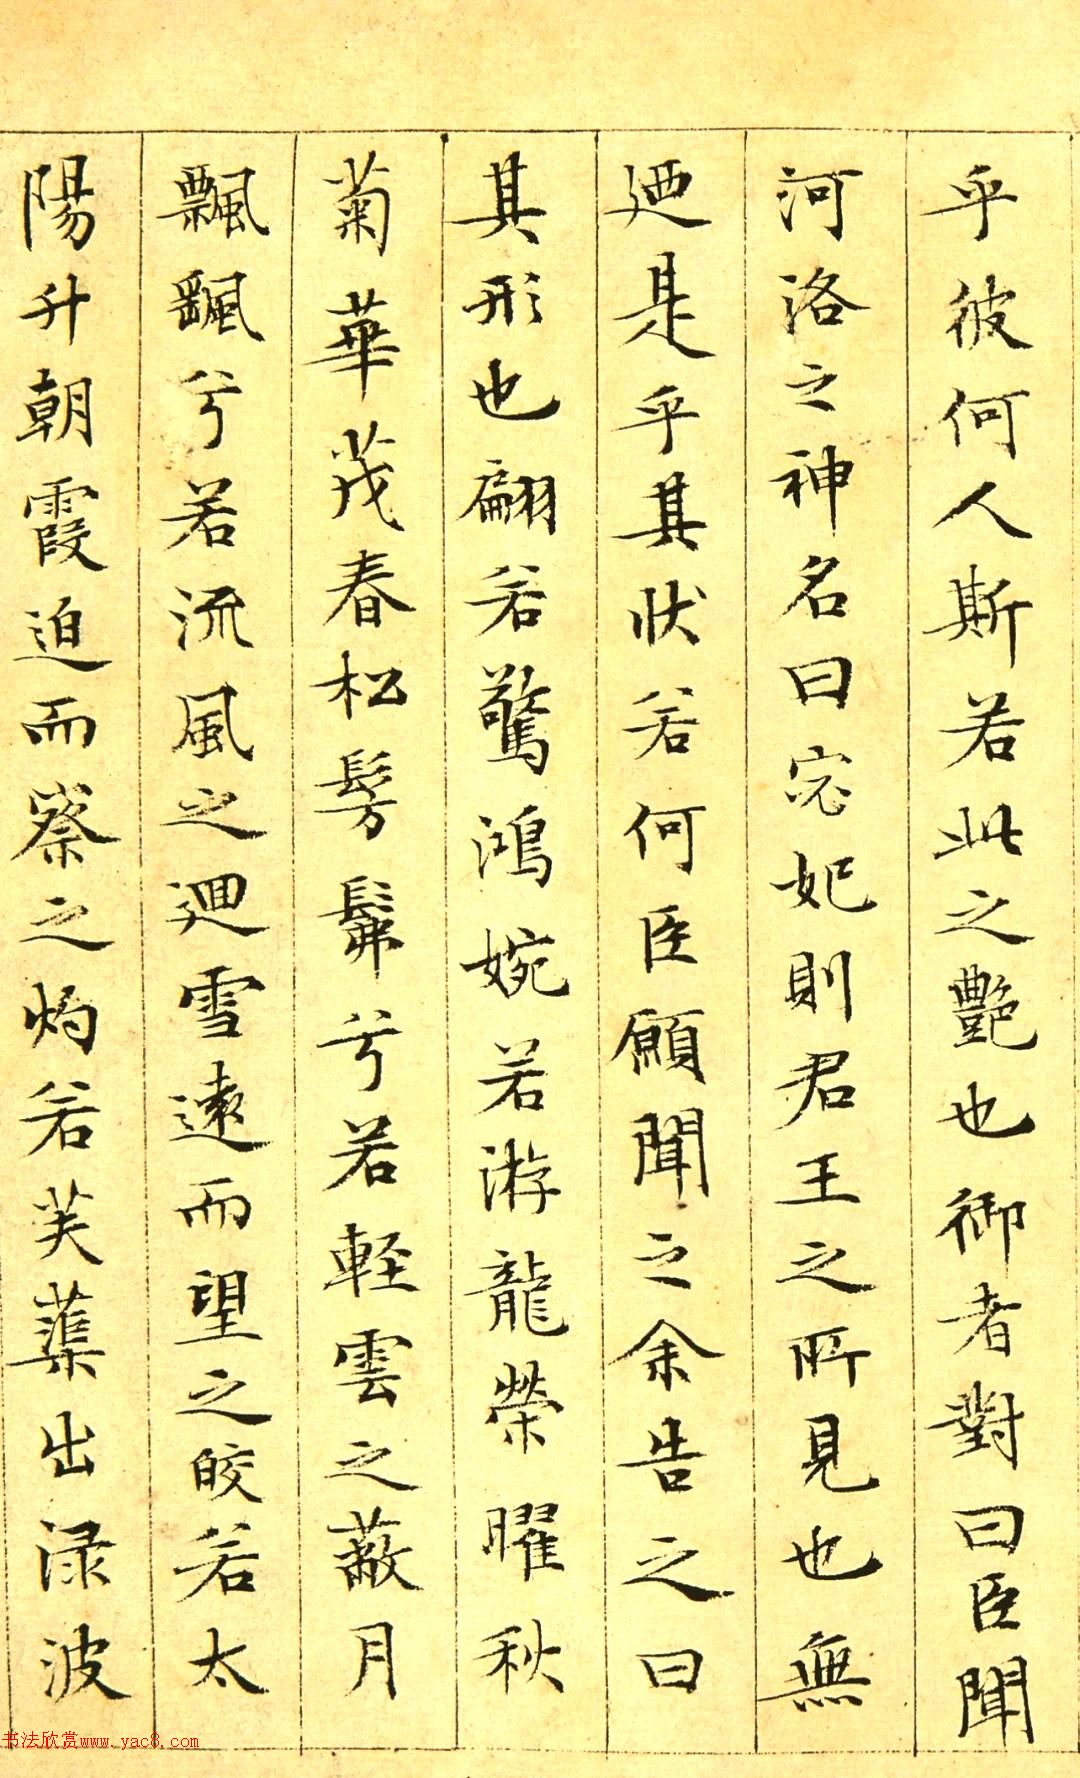 乎彼何人斯若此之艷也御者對曰臣聞
河洛之神名曰宓妃則君王之所見也無
迺是乎其狀若何臣願聞之余告之曰
其形也翩若驚鴻婉若游龍榮曜秋
菊華茂春松髣髴兮若輕雲之蔽月
飄颻兮若流風之迴雪遠而望之皎若太
陽升朝霞迫而察之灼若芙蕖出渌波
书法欣赏www.yac8.com